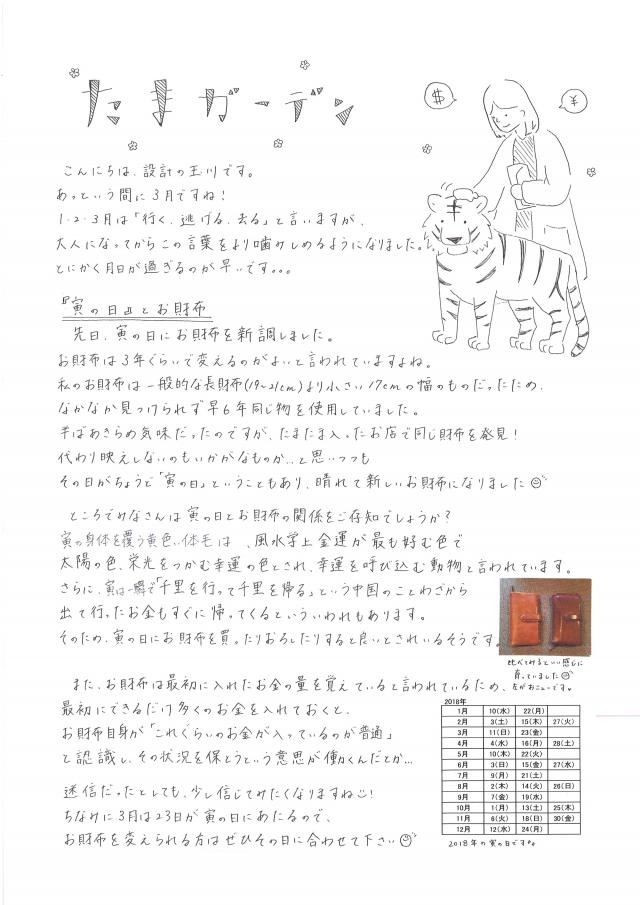 たまガーデン
$
¥
こんにちは、設計の玉川です。
あっという間に3月ですね！
1・2・3月は「行く、逃げる、去る」と言いますが、
大人になってからこの言葉をより噛みしめるようになりました。
とにかく月日が過ぎるのが早いです。。。
『寅の日』とお財布
先日、寅の日にお財布を新調しました。
お財布は3年くらいで変えるのがよいと言われていますよね。
私のお財布は一般的な長財布(19~21cm)より小さい17cmの幅のものだったため、
なかなか見つけられず早6年同じ物を使用していました。
半ばあきらめ気味だったのですが、たまたま入ったお店で同じ財布を発見！
代わり映えしないのもいかがなものか…と思いつつも
その日がちょうど「寅の日」ということもあり、晴れて新しいお財布になりました
ところでみなさんは寅の日とお財布の関係をご存知でしょうか？
寅の身体を覆う黄色い体毛は、風水学上金運が最も好む色で
太陽の色、栄光をつかむ幸運の色とされ、幸運を呼び込む動物と言われています。
さらに、寅は一瞬で「千里を行って千里を帰る」という中国のことわざから
出て行ったお金もすぐに帰ってくるといういわれもあります。
そのため、寅の日にお財布を買ったりおろしたりすると良いとされいるそうです。
比べてみるといい感じに
育っていました
左がおニューです。
また、お財布は最初に入れたお金の量を覚えていると言われているため、
最初にできるだけ多くのお金を入れておくと、
お財布自身が「これぐらいのお金が入っているのが普通」
と認識し、その状況を保とうという意思が働くんだとか…
迷信だったとしても、少し信じてみたくなりますね！
ちなみに3月は23日が寅の日にあたるので、
お財布を変えられる方はぜひその日に合わせて下さい
2018年
1月 10(水) 22(月)
2月 3(土) 15(木) 27(火)
3月 11(日) 23(金)
4月 4(水) 16(月) 28(土)
5月 10(木) 22(火)
6月 3(日) 15(金) 27(水)
7月 9(月) 21(土)
8月 2(木) 14(火) 26(日)
9月 7(金) 19(水)
10月 1(月) 13(土) 25(木)
11月 6(火) 18(日) 30(金)
12月 12(水) 24(月)
2018年の寅の日です